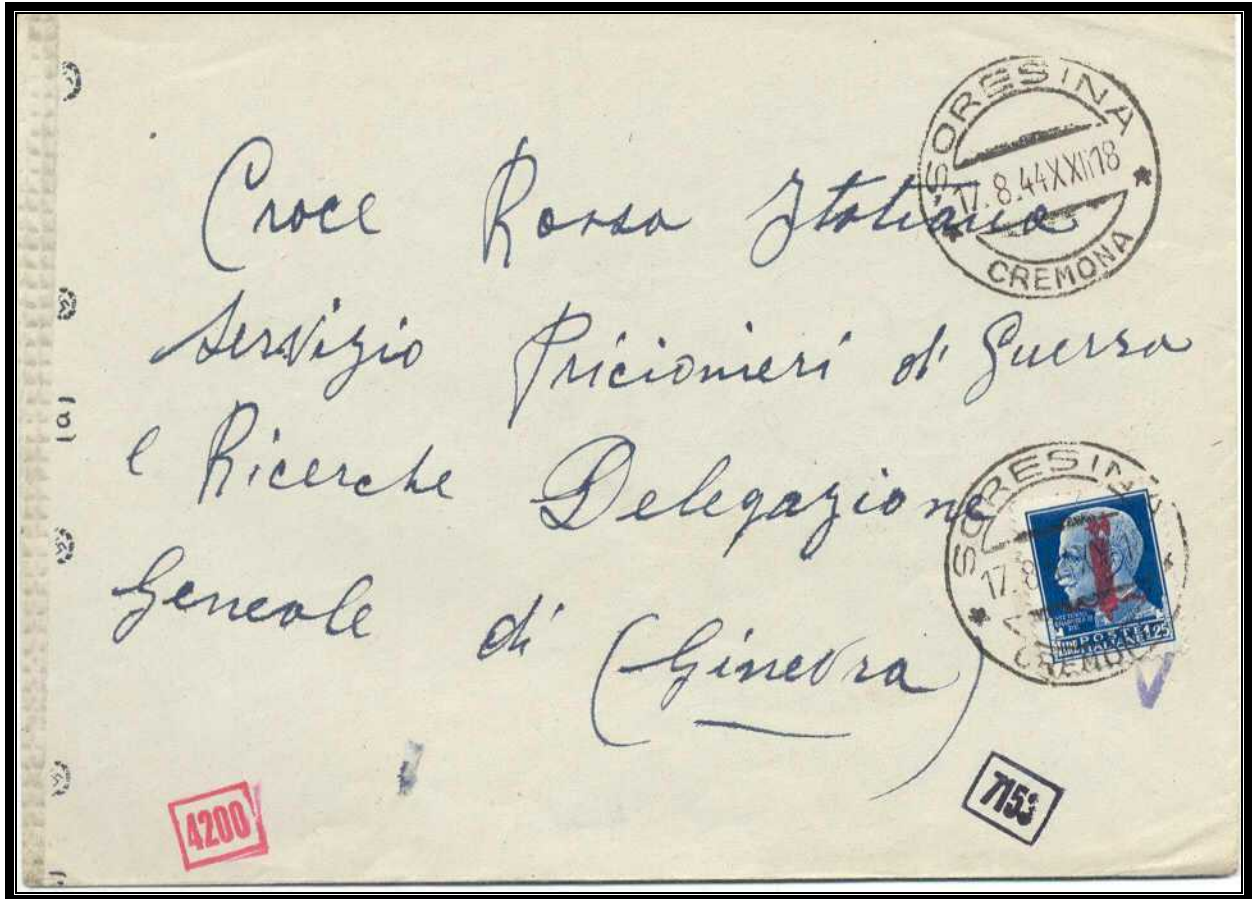 SORESINA
17.8.44XXII18
CREMONA
Croce Rossa Italiana
Servizio Pricionieri di Guerra
e Ricerche Delegazione
Generale di (Ginevra)
SORESINA
17.8
CREMONA
POSTE
ITALIANE
1,25
(a)
4200
7153